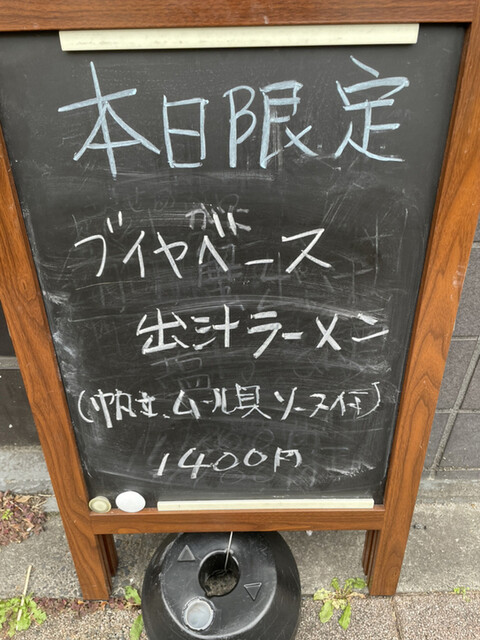 本日限定
がに
ブイヤベース
出汁ラーメン
(帆立、ムール貝ソース付)
1400円